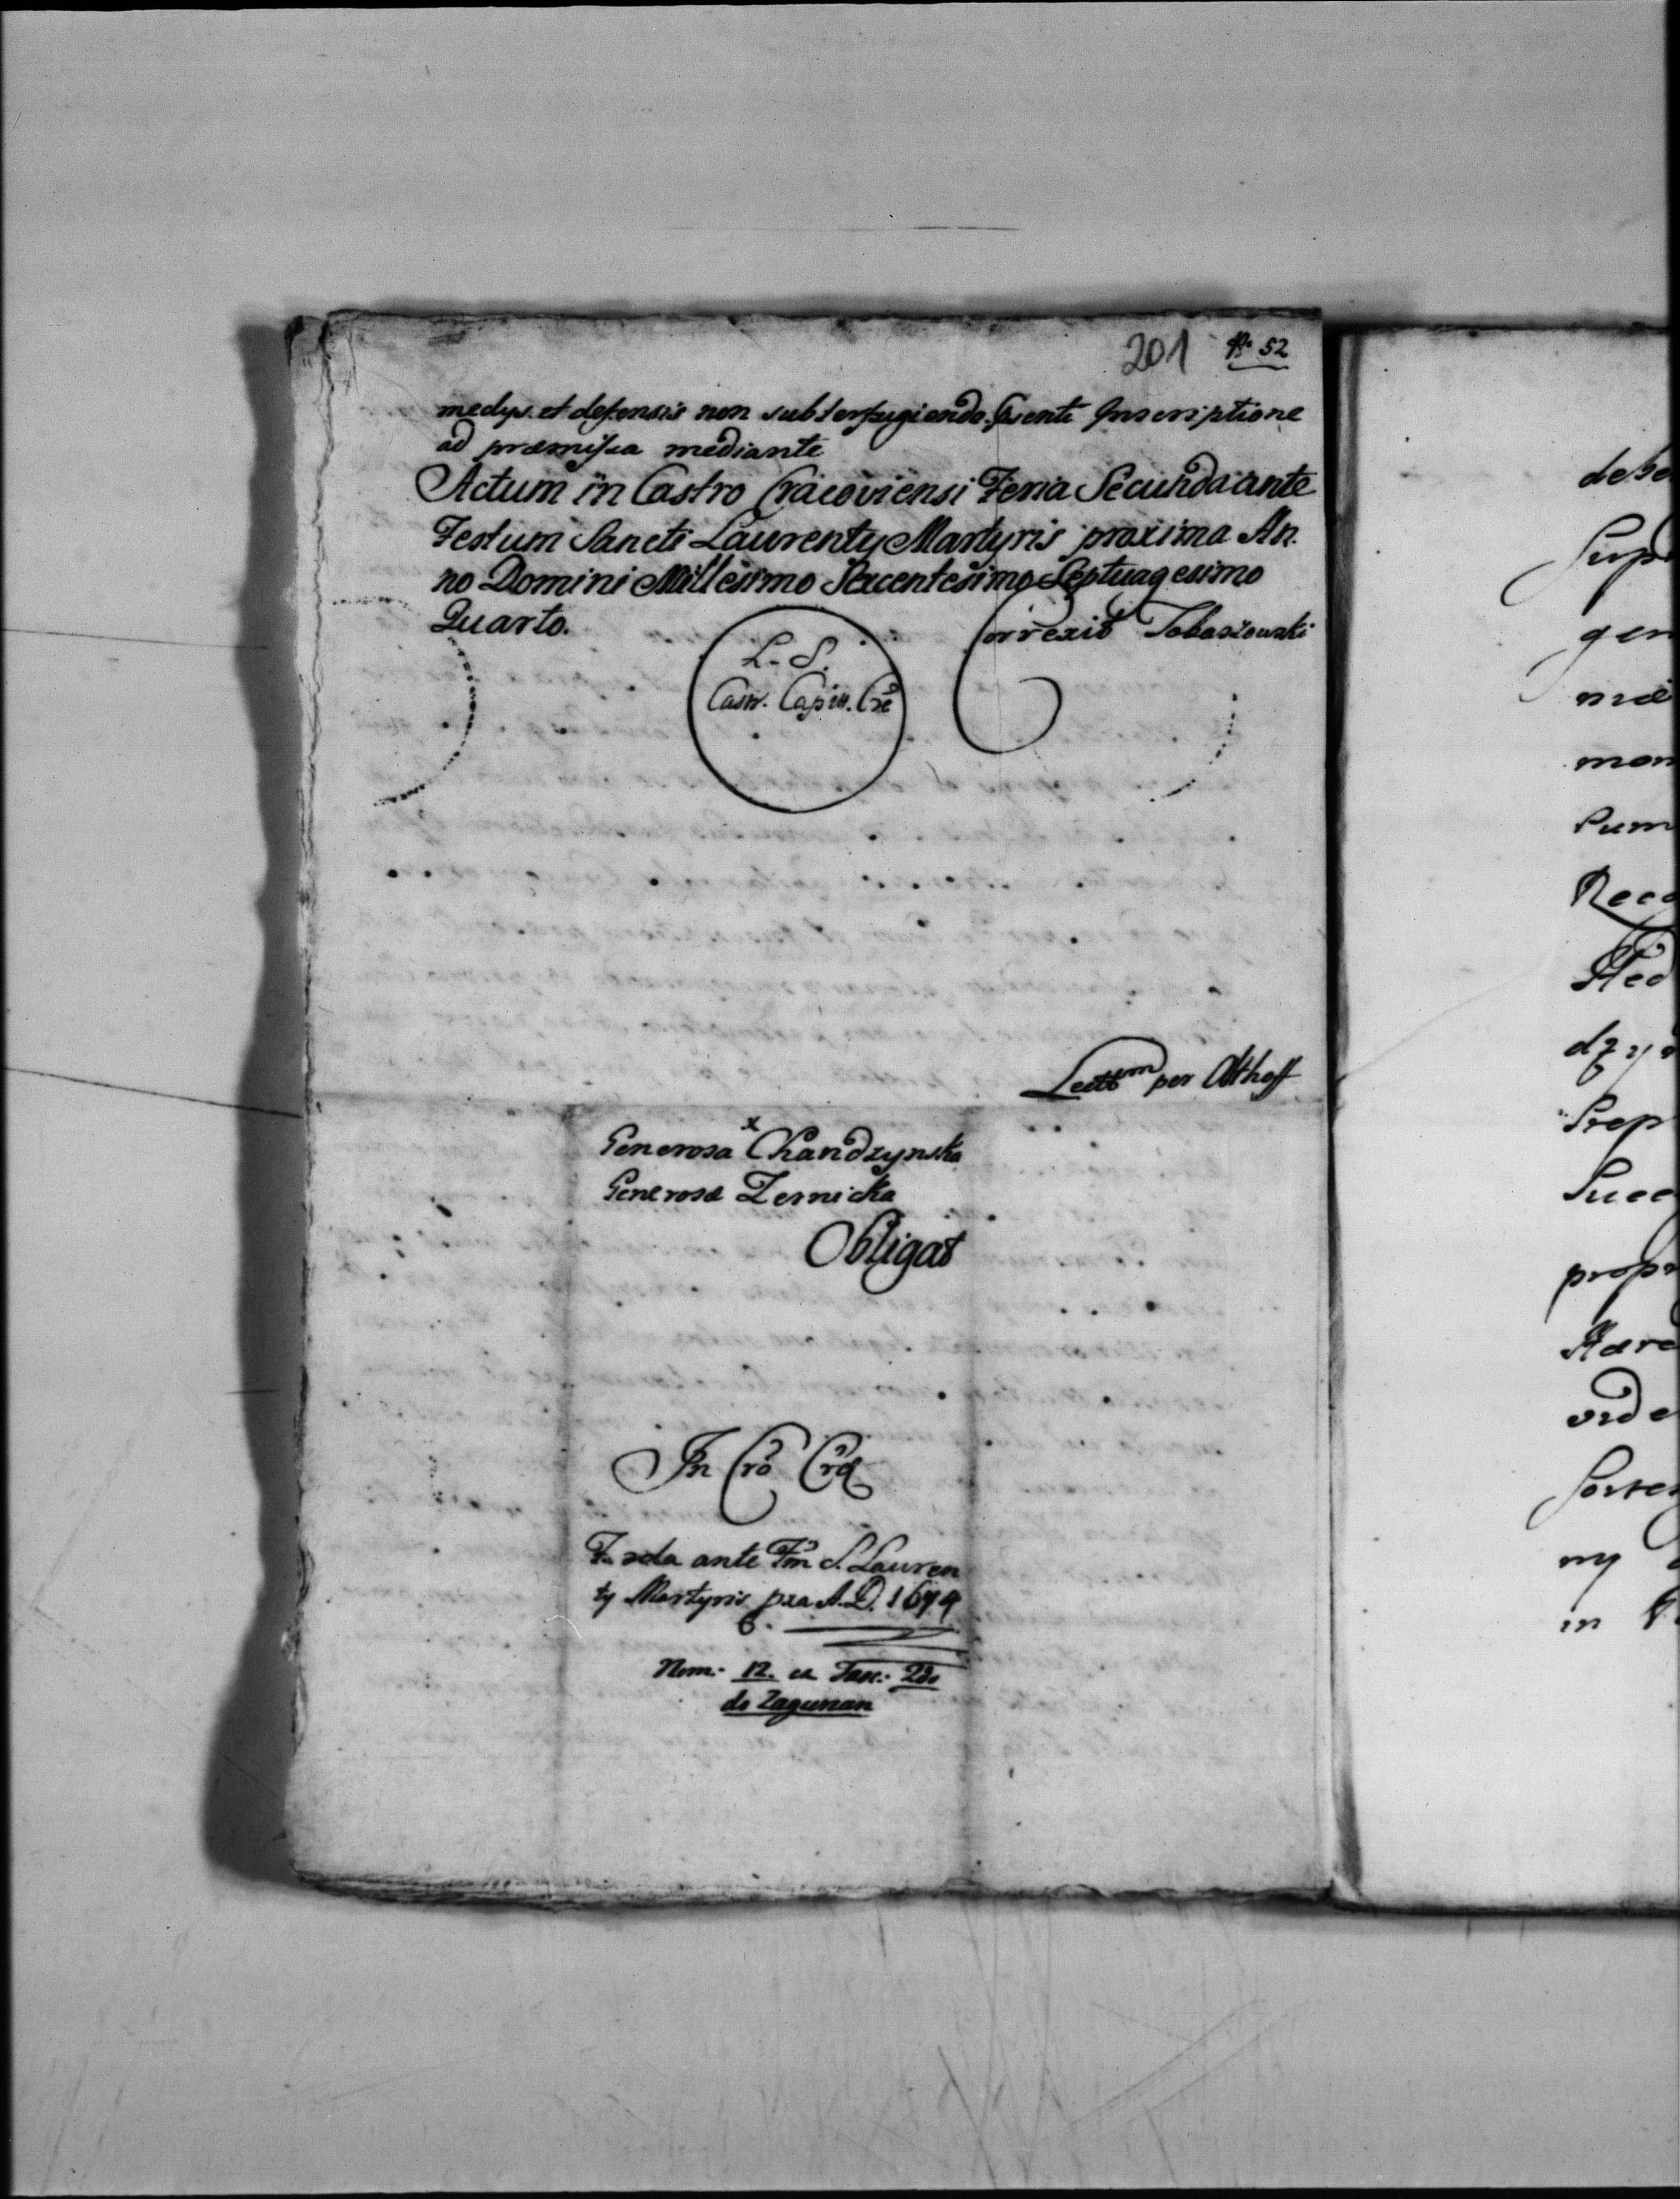 201 N. 52
medys et defensis non subterfugiendo. Psenti Inscriptione
ad præmissa mediante
Actum in Castro Cracoviensi Feria Secunda ante
Festum Sancti Laurenty Martyris proxima An.
no Domini Millesimo Sexcentesimo Septuagesimo
Quarto.
Correxit Tobaszowski
L. S.
Castr. Capit. Cre
Lectum per Althoff
Generosa x Chandzynska
Generosæ Zernicka
Obligat
In Cro Crac
F. 2da ante Fm S. Lauren
ty Martyris pxa A. D. 1674
Num. 12. ex Fasc. 2do
de Zagurzan
dębe
Sup
gen
mæ
mon
Sum
Reco
dzy
Prep
Succ
prop
Hære
orde
Sorte
ny
in